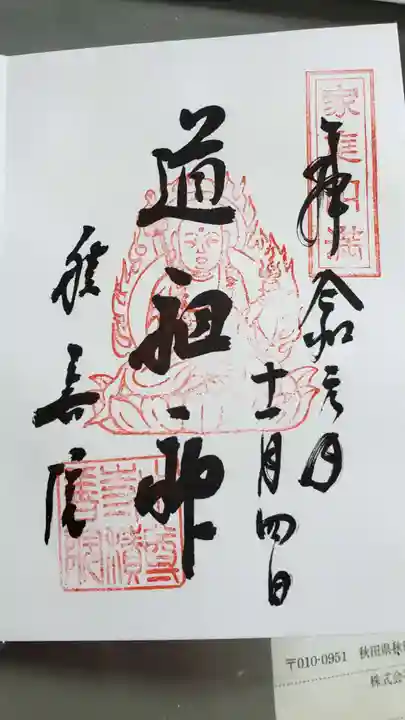 家庭円満
奉拝 令和元年
十一月四日
道祖神
〒010-0951 秋田県
株式会